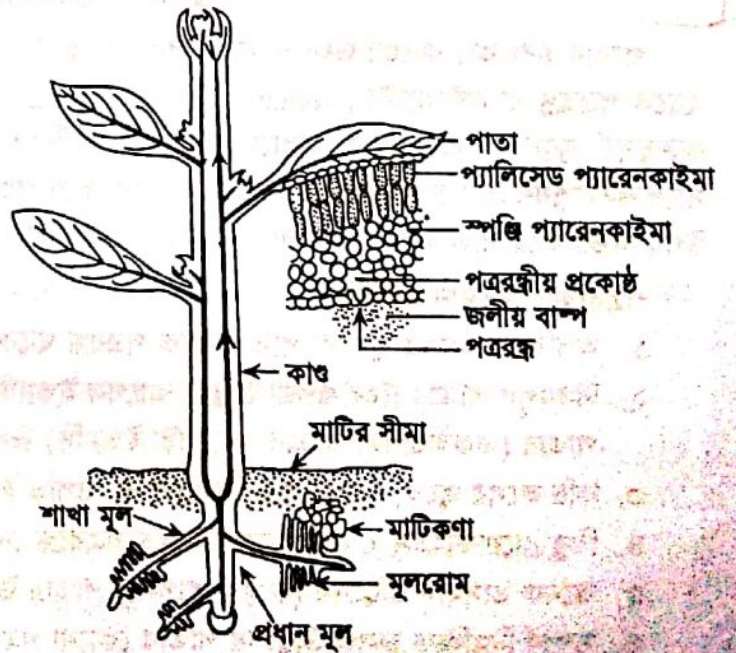 পাতা
প্যালিসেড প্যারেনকাইমা
স্পঞ্জি প্যারেনকাইমা
পত্ররন্ধ্রীয় প্রকোষ্ঠ
জলীয় বাষ্প
পত্ররন্ধ্র
কাণ্ড
মাটির সীমা
শাখা মূল
মাটিকণা
মূলরোম
প্রধান মূল